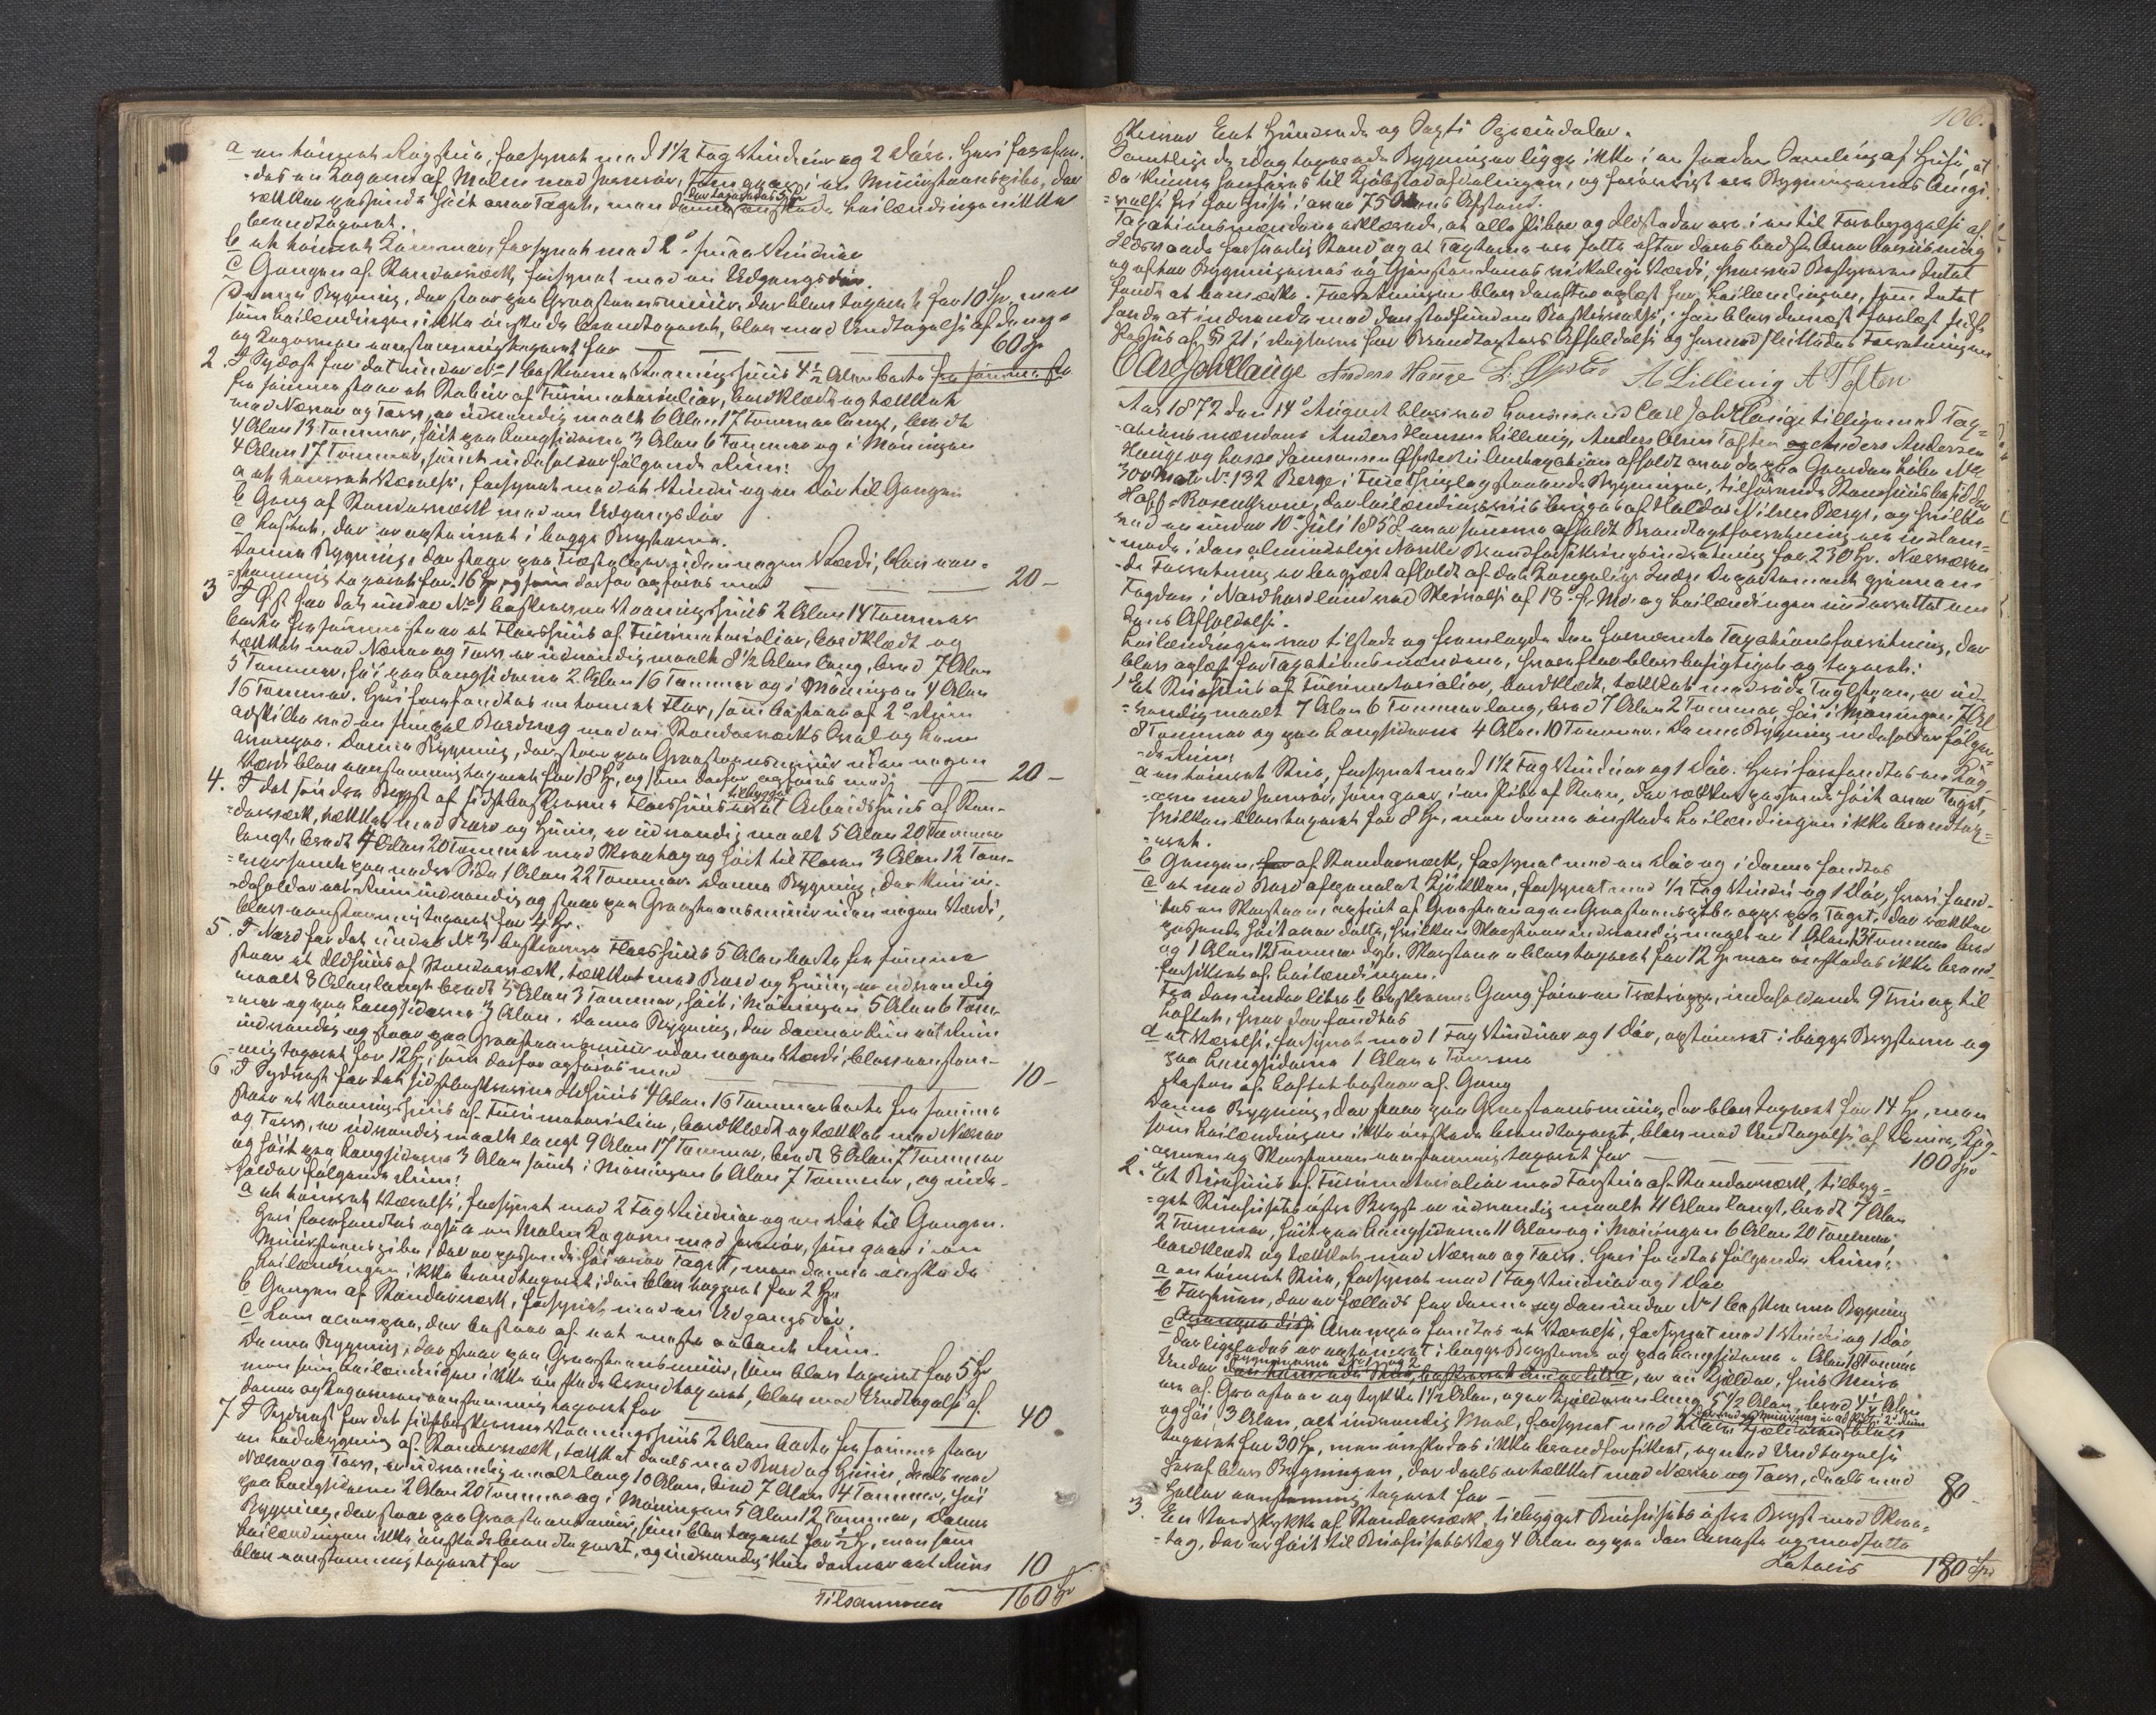 a en tömret Røgstue, forsynet med 1 1/2 Fag Vinduer og 2 Døre. Heri forefan-
des en Kagovn af Malm med Jernrør, som gaaer i en Muurstenspibe, der
der taxeredes 5 Sp
rækker passende höit over Taget, men denne önskede Leilændingen ikke
brandtaxeret.
b et tömret Kammer forsynet med 2de smaa Vinduer
c Gangen af Standerværk, forsynet med en Udgangsdör.
Denne Bygning, der staar paa Graastensmuur, der blev taxeret for 10 Sp, men
som Leilændingen ikke önskede brandtaxeret, blev med Undtagelse af denne
og Kagovnen eenstemmig taxeret for — — — 60 Sp
2. I Sydost for det under No 1 beskrevne Vaaningshuus 4 1/2 Alen borte
fra samme staar et Stabuur af Furumaterialier, bordklædt og tækket
med Næver og Torv, er udvendig maalt 6 Alen 17 Tommer langt, bredt
4 Alen 13 Tommer, höit paa Langsiderne 3 Alen 6 Tommer og i Möningen
4 Alen 17 Tommer, samt indeholder fölgende Rum:
a et tömret Værelse, forsynet med et Vindue og en Dör til Gangen
b Gang af Standerværk med en Udgangsdör
c Loftet, der er optömret i begge Brystene.
Denne Bygning, der staar paa Træstolper uden nogen Værdi, blev een-
stemmig taxeret for 16 Sp og som derfor opföres med — — 20 –
3 I Öst for det under No 1 beskrevne Vaaningshuus 2 Alen 14 Tommer
borte fra samme staar et Floerhuus af Furumaterialier, bordklædt og
tækket med Næver og Torv, er udvendig maalt 8 1/2 Alen lang, bred 7 Alen
5 Tommer, höi paa Langsiderne 2 Alen 16 Tommer og i Möningen 4 Alen
16 Tommer. Heri forefandtes en tömret Flor, som bestaar af 2de Rum
adskilte ved en simpel Bordvæg med en Standerværks Sval og Lem
ovenpaa. Denne Bygning, der staar paa Graastensmuur uden nogen
Værdi blev eenstemmig taxeret for 18 Sp, og som derfor opföres med — 20 –
4. I det söndre Bryst af sidstbeskrevne Floerhuus er tilbygget et Arbeidshuus af Stan-
derværk, tækket med Bord og Huun, er udvendig maalt 5 Alen 20 Tommer
langt, bredt 4 Alen 20 Tommer med Skraatag og höit til Floren 3 Alen 12 Tom-
mer samt paa nedre Side 1 Alen 22 Tommer. Denne Bygning, der kun in-
deholder eet Rum indvendig og staar paa Graastensmuur uden nogen Værdi,
blev eenstemmig taxeret for 4 Sp.
5. I Nord for det under No 3 beskrevne Floerhuus 5 Alen borte fra samme
staar et Ildhuus af Standerværk, tækket med Bord og Huun, er udvendig
maalt 8 Alen langt bredt 5 Alen 3 Tommer, höit i Möningen 5 Alen 6 Tom-
mer og paa Langsiderne 3 Alen. Denne Bygning, der danner kun eet Rum
indvendig og staar paa Graastensmuur uden nogen Værdi, blev eenstem-
mig taxeret for 12 Sp, som derfor opföres med — — 10 –
6 I Sydvest for det sidstbeskrevne Ildhuus 4 Alen 16 Tommer borte fra samme
staar et Vaaningshuus af Furumaterialier, bordklædt og tækket med Næver
og Torv, er udvendig maalt langt 9 Alen 17 Tommer, bredt 8 Alen 7 Tommer
og höit paa Langsiderne 3 Alen samt i Möningen 6 Alen 7 Tommer, og inde-
holder fölgende Rum:
a et tömret Værelse, forsynet med 2 Fag Vinduer og en Dör til Gangen.
Heri forefandtes ogsaa en Malm Kagovn med Jernrör, som gaar i en
Muurstenspibe, der er passende höi over Taget, men denne önskede
Leilændingen ikke brandtaxeret, den blev taxeret for 2 Sp.
b Gangen af Standerværk, forsynet med en Udgangsdör.
c Lem ovenpaa, der bestaar af eet eneste aabent Rum.
Denne Bygning, der staar paa Graastensmuur, som blev taxeret for 5 Sp
men som Leilændingen ikke önskede brandtaxeret, blev med Undtagelse af
denne og Kagovnen eenstemmig taxeret for — — 40
7 I Sydvest for det sidstbeskrevne Vaaningshuus 2 Alen borte fra samme staar
en Ladebygning af Standerværk, tækket deels med Bord og Huun, deels med
Næver og Torv, er udvendig maalt lang 10 Alen, bred 7 Alen 4 Tommer, höi
paa Langsiderne 2 Alen 20 Tommer og i Möningen 5 Alen 12 Tommer, Denne
Bygning, der staar paa Graastensmuur, som blev taxeret for 1/2 Sp, men som
Leilændingen ikke önskede brandtaxeret, og indvendig kun danner eet Rum
blev eenstemmig taxeret for — — 10
Tilsammen 160 Sp
106.
skriver Eet Hundrede og Sexti Speciedaler.
Samtlige de idag taxerede Bygninger ligge ikke i en saadan Samling af Huse, at
de kunne henföres til Kjöbstadafdelingen, og forövrigt ere Bygningernes Omgi-
velse fri for Huse i over 75 Alens Afstand.
Taxationsmændene erklærede, at alle Piber og Ildsteder ere i en til Forebyggelse af
Ildsvaade forsvarlig Stand og at Taxterne ere satte efter deres bedste Overbeviisning
og efter Bygningernes og Gjenstandenes virkelige Værdi, hvorved Bestyreren Intet
fandt at bemærke. Forretningen blev derefter oplæst for Leilændingen, som Intet
havde at indvende mod den stedfundne Beskrivelse; han blev dernæst forelæst sidste
Passus af § 21 i Reglerne for Brandtaxters Afholdelse og hermed sluttedes Forretningen
Carl Joh Klauge Anders Hauge L. Øpsteo A Lillevig A Toften
Aar 1872 den 14de August blev ved Lensmand Carl Joh Klauge tilligemed Tax-
ationsmændene Anders Hansen Lillevig, Anders Olsen Toften og Anders Andersen
Hauge og Lasse Samsonsen Øpsteo en Omtaxation afholdt over de paa Gaarden Löbe No
300 Matr No 132 Berge i Fuse Thinglag staaende Bygninger, tilhörende Stamhuusbesidder
Hoff-Rosenkrone, der leilændingsviis bruges af Haldor Nilsen Berge, og hvilke
ved en under 10de Juli 1858 over samme afholdt Brandtaxtforretning ere indlem-
mede i den almindelige Norske Brandforsikringsindretning for 230 Sp. Nærværen-
de Forretning er begjært afholdt af det Kongelige Indre Departement gjennem
Fogden i Nordhordland ved Skrivelse af 18de f. Md. og Leilændingen underrettet om
dens Afholdelse.
Leilændingen var tilstede og fremlagde den fornævnte Taxationsforretning, der
blev oplæst for Taxationsmændene, hvorefter blev besigtiget og taxeret:
1 Et Stuehuus af Furumaterialier, bordklædt, tækket med röde Taglsteen, er ud-
vendig maalt 7 Alen 6 Tommer lang, bred 7 Alen 2 Tommer, höi i Möningen 7 Al
8 Tommer og paa Langsiderne 4 Alen 10 Tommer. Denne Bygning indeholder fölgen-
de Rum:
a en tömret Stue, forsynet med 1 1/2 Fag Vinduer og 1 Dör. Heri forefandtes en Kag-
ovn med Jernrör, som gaar i en Pibe af Steen, der rækker passende höit over Taget,
hvilken blev taxeret for 8 Sp, men denne önskede Leilændingen ikke brandtax-
eret.
b Gangen af Standerværk, forsynet med en Dör og i denne fandtes
c et med Bord afpanelet Kjökken, forsynet med 1/2 Fag Vindue og 1 Dör, hvori fand-
tes en Skorsteen, opfört af Graasteen og en Graasteenspibe op paa Taget, der rækker
passende höit over dette, hvilken Skorsteen indvendig maalt er 1 Alen 13 Tommer bred
og 1 Alen 12 Tommer dyb. Skorstenen blev taxeret for 12 Sp men önskedes ikke brand-
forsikret af Leilændingen.
Fra den under litra b beskrevne Gang förer en Trætrappe, indeholdende 9 Trin op til
Loftet, hvor der fandtes
d et Værelse, forsynet med 1 Fag Vinduer og 1 Dör, optömret i begge Brystene og
paa Langsiderne 1 Alen " Tomme
Resten af Loftet bestaar af Gang
Denne Bygning, der staar paa Graasteensmuur, der blev taxeret for 14 Sp, men
som Leilændingen ikke önskede brandtaxeret, blev med Undtagelse af denne, Kag-
ovnen og Skorstenen eenstemmig taxeret for — — 100 Spd
2. Et Bryshuus af Furumaterialier med Forstue af Standerværk, tilbyg-
get Stuehusets östre Bryst er udvendig maalt 11 Alen langt, bredt 7 Alen
2 Tommer, höit paa Langsiderne 4 Alen og i Möningen 6 Alen 20 Tommer,
bordklædt og tækket med Næver og Torv. Heri fandtes fölgende Rum:
a en tömret Stue, forsynet med 1 Fag Vinduer og 1 Dör
b Forstuen, der er fælleds for denne og den under No 1 beskrevne Bygning
c Ovenpaa fandtes et Værelse, forsynet med 1 Vindue og 1 Dör
der ligeledes er optömret i begge Brystene og paa Langsiderne " Alen 18 Tommer
Bygningerne No 1 og 2
Under er en Kjælder, hvis Mure
ere af Graasteen og tykke 1 1/2 Alen, og er Kjælderen lang 5 1/2 Alen, bred 4 1/4 Alen
og höi 3 Alen, alt indvendig Maal, forsynet med Kjælderen blev
taxeret for 30 Sp, men önskedes ikke brandforsikret, og med Undtagelse
heraf blev Bygningen, der deels er tækket med Næver og Torv, deels med
Heller eenstemmig taxeret for — — 80 –
3. En Vedskykke af Standerværk, tilbygget Bryshusets östre Bryst med Skraa-
tag, der er höit til Bryshusets Væg 4 Alen og paa den laveste og modsatte
Lateris 180 Spd